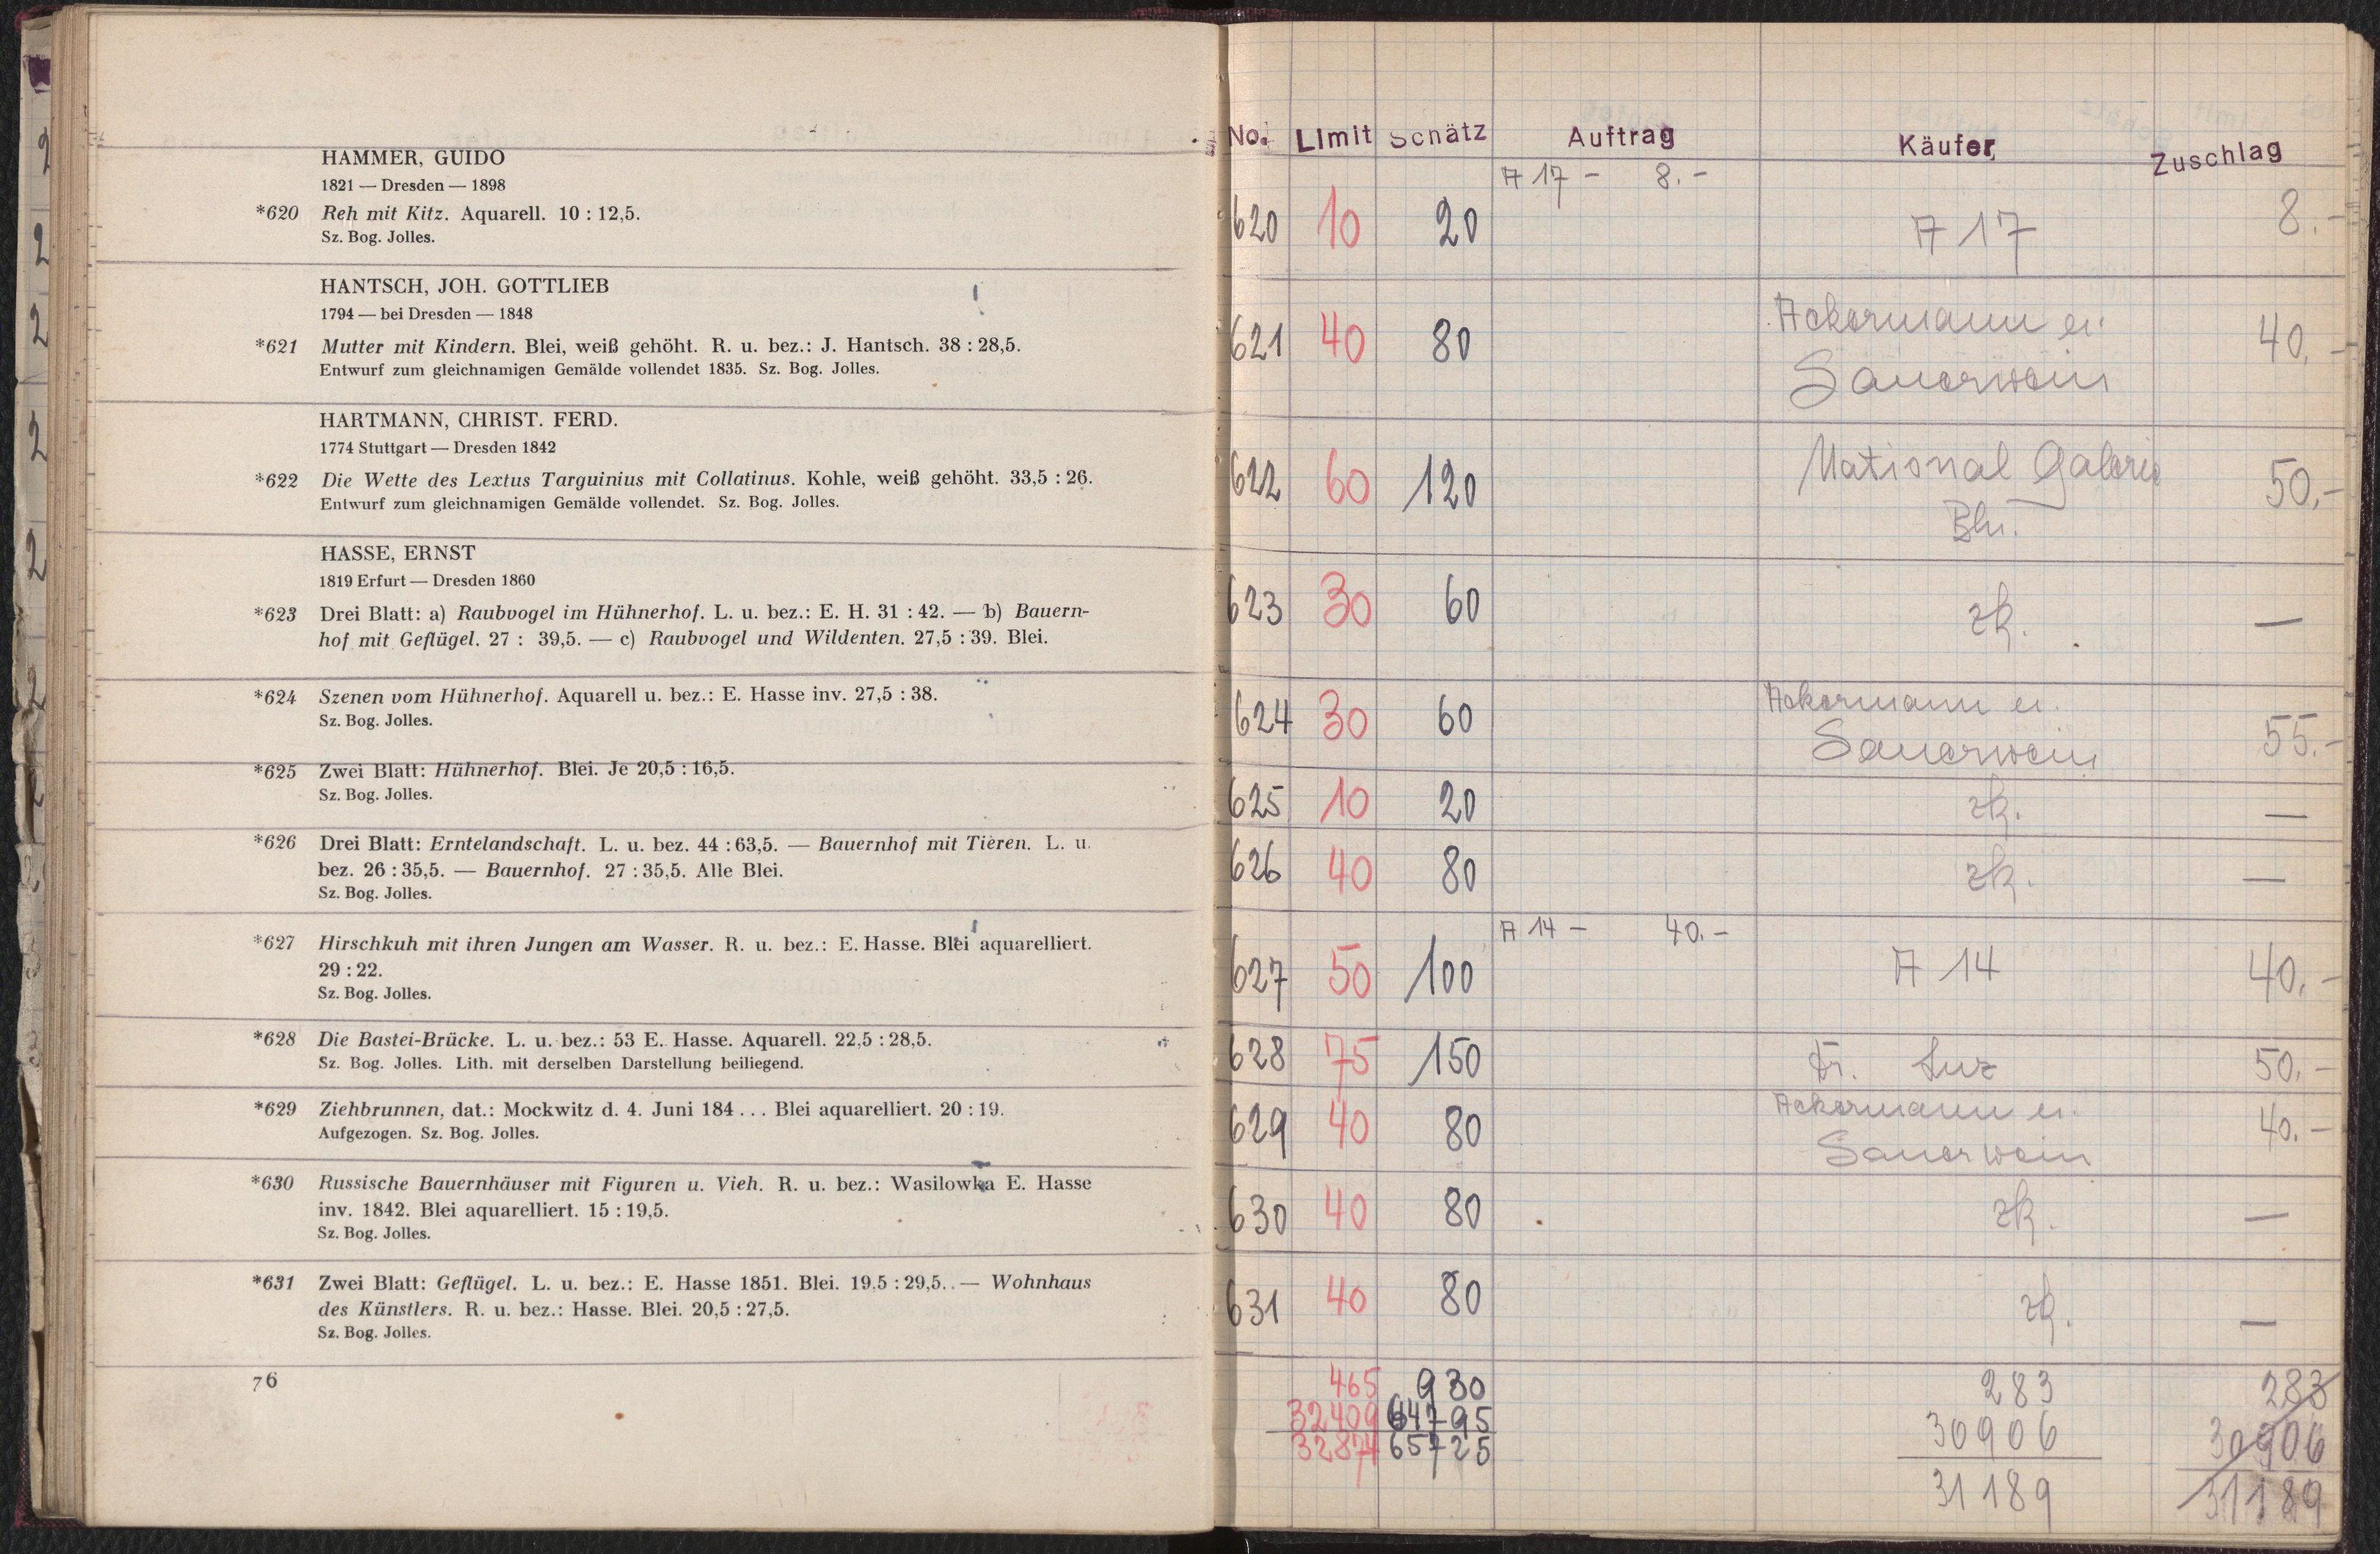 HAMMER, GUIDO
1821 — Dresden — 1898
*620 Reh mit Kitz. Aquarell. 10 : 12,5.
Sz. Bog. Jolles.
HANTSCH, JOH. GOTTLIEB
1794 — bei Dresden — 1848
*621 Mutter mit Kindern. Blei, weiß gehöht. R. u. bez.: J. Hantsch. 38 : 28,5.
Entwurf zum gleichnamigen Gemälde vollendet 1835. Sz. Bog. Jolles.
HARTMANN, CHRIST. FERD.
1774 Stuttgart — Dresden 1842
*622 Die Wette des Lextus Targuinius mit Collatinus. Kohle, weiß gehöht. 33,5 : 26.
Entwurf zum gleichnamigen Gemälde vollendet. Sz. Bog. Jolles.
HASSE, ERNST
1819 Erfurt — Dresden 1860
*623 Drei Blatt: a) Raubvogel im Hühnerhof. L. u. bez.: E. H. 31 : 42. — b) Bauern-
hof mit Geflügel. 27 : 39,5. — c) Raubvogel und Wildenten. 27,5 : 39. Blei.
*624 Szenen vom Hühnerhof. Aquarell u. bez.: E. Hasse inv. 27,5 : 38.
Sz. Bog. Jolles.
*625 Zwei Blatt: Hühnerhof. Blei. Je 20,5 : 16,5.
Sz. Bog. Jolles.
*626 Drei Blatt: Erntelandschaft. L. u. bez. 44 : 63,5. — Bauernhof mit Tieren. L. u.
bez. 26 : 35,5. — Bauernhof. 27 : 35,5. Alle Blei.
Sz. Bog. Jolles.
*627 Hirschkuh mit ihren Jungen am Wasser. R. u. bez.: E. Hasse. Blei aquarelliert.
29 : 22.
Sz. Bog. Jolles.
*628 Die Bastei-Brücke. L. u. bez.: 53 E. Hasse. Aquarell. 22,5 : 28,5.
Sz. Bog. Jolles. Lith. mit derselben Darstellung beiliegend.
*629 Ziehbrunnen, dat.: Mockwitz d. 4. Juni 184 . . . Blei aquarelliert. 20 : 19.
Aufgezogen. Sz. Bog. Jolles.
*630 Russische Bauernhäuser mit Figuren u. Vieh. R. u. bez.: Wasilowka E. Hasse
inv. 1842. Blei aquarelliert. 15 : 19,5.
Sz. Bog. Jolles.
*631 Zwei Blatt: Geflügel. L. u. bez.: E. Hasse 1851. Blei. 19,5 : 29,5. — Wohnhaus
des Künstlers. R. u. bez.: Hasse. Blei. 20,5 : 27,5.
Sz. Bog. Jolles.
76
No. Limit Schätz Auftrag Käufer Zuschlag
A 17 - 8.-
620 10 20 A 17 8.-
Ackermann u.
621 40 80 40.-
Sauerwein
622 60 120 National Galerie 50,-
Bln.
623 30 60 zk. —
Ackermann u.
624 30 60 55.-
Sauerwein
625 10 20 zk. —
626 40 80 zk. —
A 14 - 40.-
627 50 100 A 14 40,-
628 75 150 Fr. Luz 50,-
Ackermann u.
629 40 80 40.-
Sauerwein
630 40 80 zk. —
631 40 80 zk. —
465 930 283 283
32409 64795 30906 30906
32874 65725 31189 31189